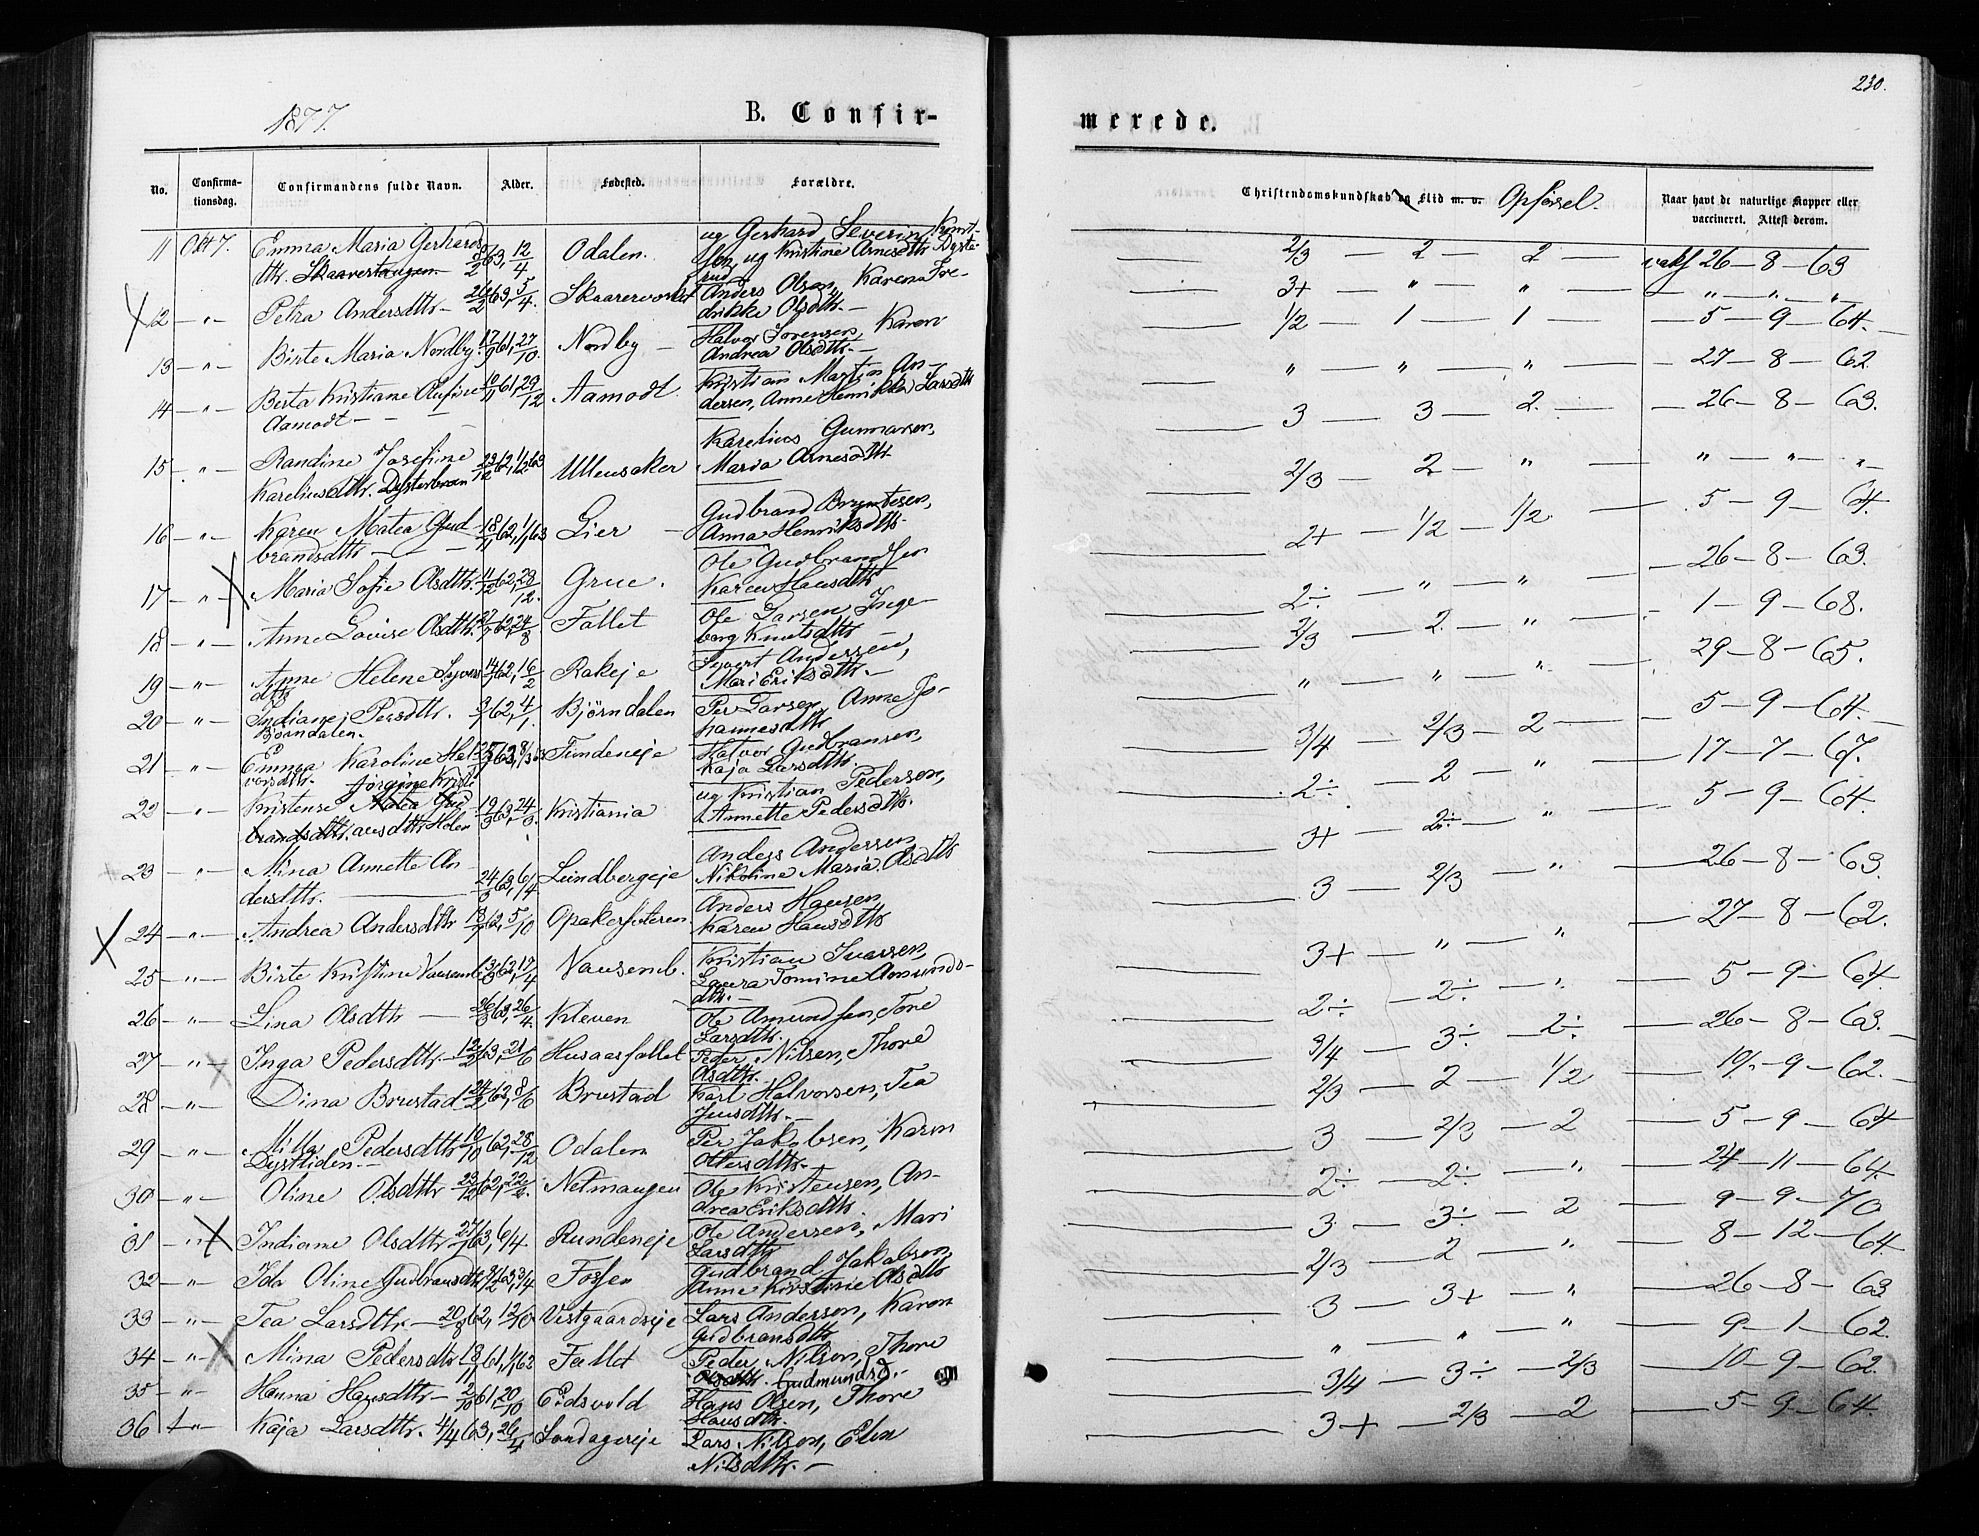 1877.
B. Confir-
No.
Confirma-
tionsdag.
Confirmandens fulde Navn.
Alder.
Fødested.
Forældre.
11 Okt 7. Emma Maria Gerhards
dtr. Skaarerstangen 8/2 63, 12/4 Odalen. ug Gerhard Severin
sen, ug Kristine Arnesdtr
12 - " - Petra Andersdtr - 26/2 63, 5/4. Skaarerverket Anders Olsen, Karen Fre-
drikke Olsdtr. -
13 - " - Birte Maria Nordby. 17/9 61, 27/10. Nordby - Halvor Sorensen, Karen
Andrea Olsdtr. -
14 - " - Berta Kristiane Olufine 61, 29/12 Aamodt. Kristian Martin An-
Aamodt - dersen, Anne Henrikke Larsdtr
15 - " - Randine Josefine 62, Ullensaker Karelius Gunnarsen,
Kareliusdtr. Maria Arnesdtr
16 - " - Karen Matea Gud- 18/11 62, 1/1 63 Lier - Gudbrand Bryntesen,
brandsdtr Anna Henriksdtr.
17 - " - Maria Sofie Olsdtr. 11/12 62, 29/12. Grue. Ole Gudbrandsen
Karen Hansdtr
18 - " - Anne Louise Olsdtr. 27/7 62, 24/8 Fallet Ole Larsen Inge-
borg Knutsdtr
19 - " - Anne Helene Syvers 62, 16/2 Rakeje Syvert Andersen,
dtr Mari Eriksdtr. -
20 - " - Indiane Persdtr. 3/1 62, 4/1. Björndalen Per Larsen, Anne Jo-
Björndalen. hannesdtr
21 - " - Emma Karoline Hal- Tundeneje Halvor Gudbransen,
vorsdtr. Kaja Larsdtr.
22 - " - Kristense Jørgine Kristi 19/3 63, 24/ Kristiania ug Kristian Pedersen,
ansdtr Holen Annette Pedersdtr.
23 - " - Mina Annette An 24/3 63, 6/4 Lundbergeje Anders Andersen
dersdtr. Nikoline Maria Olsdtr
24 - " - Andrea Andersdtr 62, 5/10 Opakersæteren. Anders Hansen
Karen Hansdtr
25 - " - Birte Kristine 62, 17/4 Kristian Ivarsen,
Laura Tomine Amunds-
dtr. -
26 - " - Lina Olsdtr - 26/3 63, 26/4. Kleven Ole Amundsen, Tone
Larsdtr.
27 - " - Inga Pedersdtr - 12/2 63, 21/6 Husaasfallet Peder Nilsen, Thore
Olsdtr.
28 - " - Dina Brustad 24/2 63, 8/6 Brustad Karl Halvorsen, Tea
Jensdtr. -
29 - " - Milla Pedersdtr 10/10 62, 28/12 Odalen Per Jakobsen, Karen
Dystliden - Ottersdtr.
30 - " - Oline Olsdtr 23/12 62, Netmangen Ole Kristensen, An-
drea Eriksdtr.
31 " Indiane Olsdtr 27/1 63, 6/4 Rundeneje Ole Andersen, Mari
Larsdtr
32 - " - Ida Oline Gudbransdtr 63, 3/4 Fossen Gudbrand Jakobsen
Anne Kirstine Olsdtr
33 - " - Tea Larsdtr. - 20/8 62, 12/10 Vestgaardseje Lars Andersen, Karen
Gudbransdtr
34 - " - Mina Pedersdtr 18/11 61, 1/1 62 Fallet Peder Nilsen, Thore
Olsdtr. Gudmundsd. -
35 - " - Hanna Hansdtr - 2/10 61, 20/10 Eidsvold Hans Olsen, Thore
Hansdtr.
36 " Kaja Larsdtr. 4/4 63, 26/4 Sondagseje Lars Nilsen, Elen
Nilsdtr. -
230.
merede.
Christendomskundskab og Flid m. v. Opførsel.
Naar havt de naturlige Kopper eller
vaccineret. Attest derom.
2/3 - 2 - 2 - vaks 26 - 8 - 63
3+ - " - " - - " - " - " -
1/2 - 1 - 1 - - 5 - 9 - 64. -
" - " - " - - 27 - 8 - 62
3 - 3 - 2 - - 26 - 8 - 63.
2/3 - 2 - " - " - " - "
2+ - 1/2 - 1/2 - 5 - 9 - 64.
2÷ - " - " - 26 - 8 - 63.
2/3 - 2 - " - 1 - 9 - 68.
" - " - " - 29 - 8 - 65.
3/4 - 2/3 - 2 - 5 - 9 - 64. -
2÷ - 2 - " - 17 - 7 - 67.
3+ - 2÷ - " - 5 - 9 - 64.
3 - 2/3 - " - 26 - 8 - 63.
3+ - " - " - 27 - 8 - 62.
2÷ - 2÷ - " - 5 - 9 - 64.
3/4 - 3÷ - 2÷ - 26 - 8 - 63. -
2/3 - 2 - 1/2 - 19 - 9 - 62. -
3 - 2/3 - 2 - 5 - 9 - 64
2÷ - 2÷ - " - 24 - 11 - 64.
3 - 3÷ - 2 - 9 - 9 - 70
2/3 - 2 - " - 8 - 12 - 64.
3 - 3+ - " - 26 - 8 - 63
" - " - " - 9 - 1 - 62.
3/4 - 3÷ - 2/3 - 10 - 9 - 62.
3+ - 2/3 - 2 - 5 - 9 - 64.